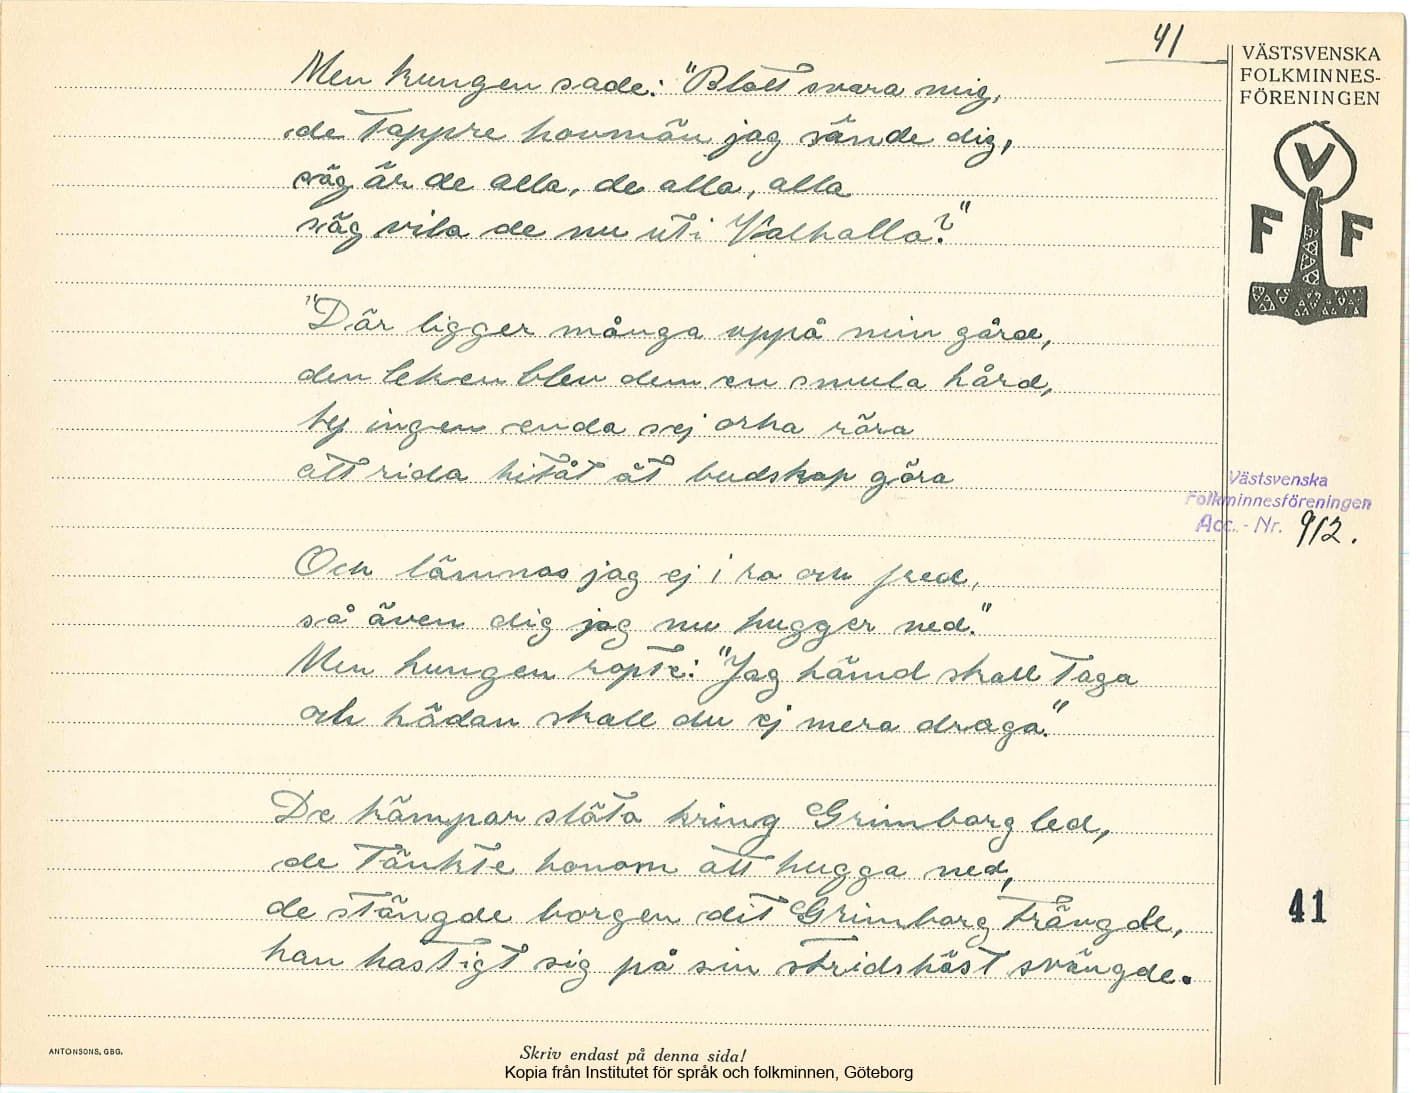 41
VÄSTSVENSKA
FOLKMINNES-
FÖRENINGEN
V
F F
Men kungen sade: "Blott svara mig,
de tappre hovmän jag sände dig,
säg är de alla, de alla, alla
säg vila de nu uti Valhalla?"
"Där ligger många uppå min gård,
den leken blev dem en smula hård,
ty ingen enda sej orka röra
att rida hitåt åt budskap göra
Västsvenska
Folkminnesföreningen
Acc. - Nr. 912.
Och lämnas jag ej i ro och fred,
så även dig jag nu hugger ned."
Men kungen ropte: "Jag hämd skall taga
och hädan skall du ej mera draga."
De kämpar slöto kring Grimborg led,
de tänkte honom att hugga ned,
de stängde borgen dit Grimborg trängde,
han hastigt sig på sin stridshäst svängde.
41
ANTONSONS, GBG.
Skriv endast på denna sida!
Kopia från Institutet för språk och folkminnen, Göteborg